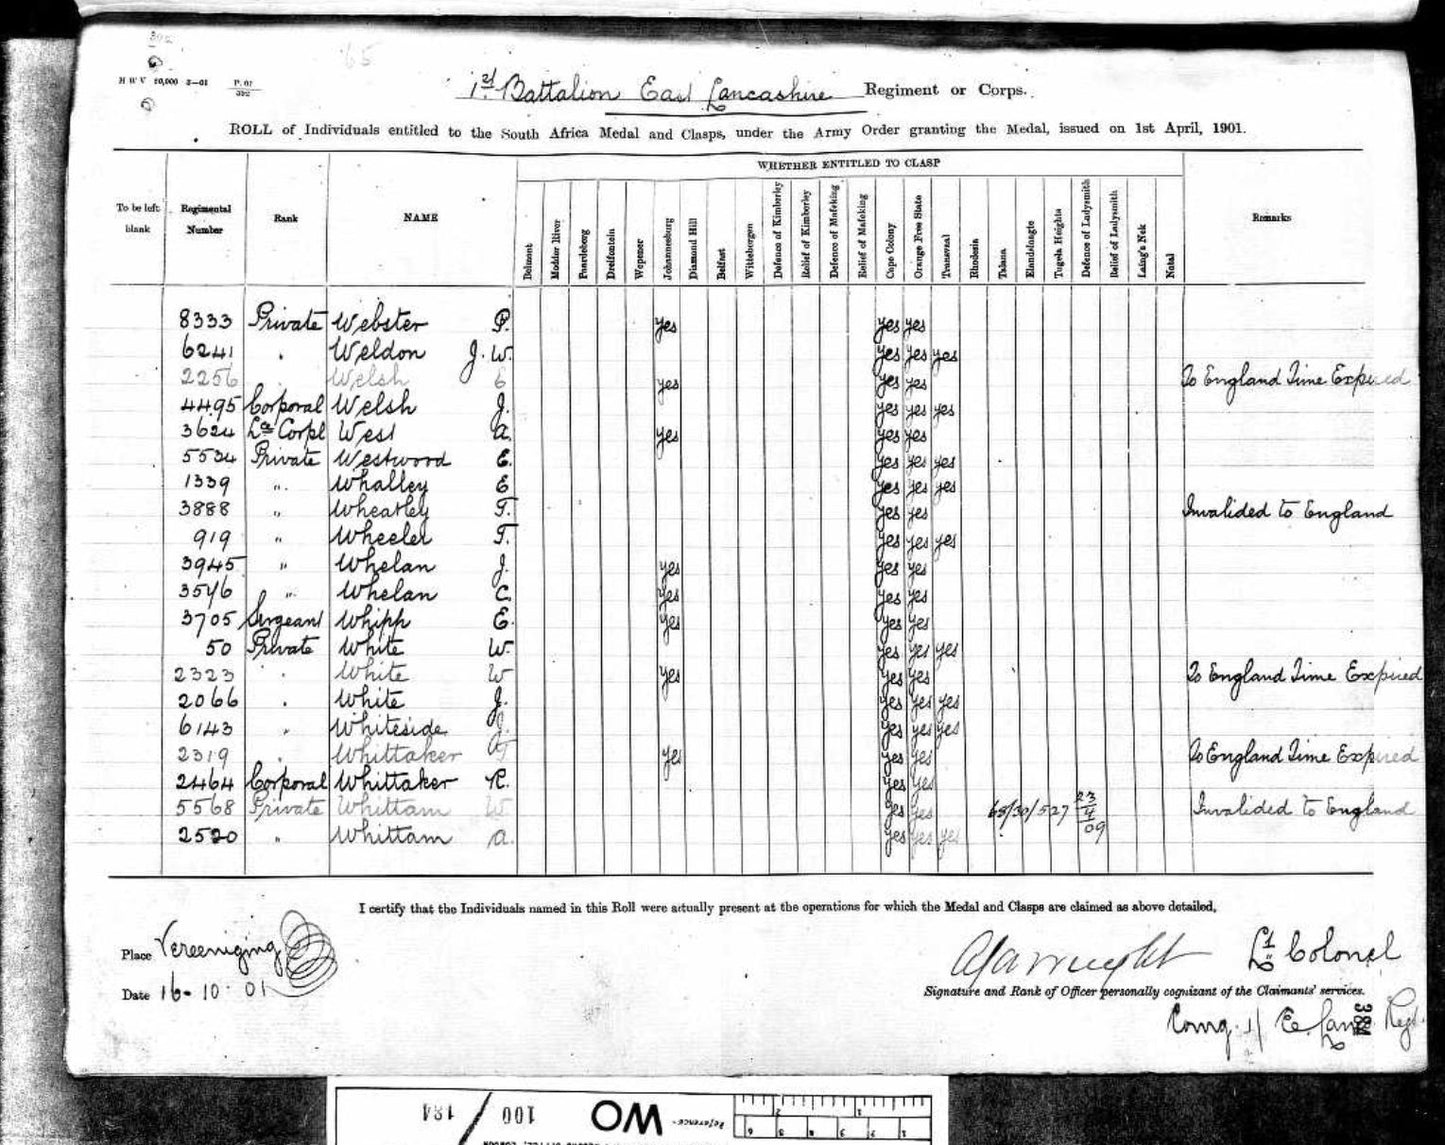 65
H W V 50,000 3—01 P. 01/392
1st Battalion East Lancashire Regiment or Corps.
ROLL of Individuals entitled to the South Africa Medal and Clasps, under the Army Order granting the Medal, issued on 1st April, 1901.
WHETHER ENTITLED TO CLASP
To be left blank Regimental Number Rank NAME Belmont Modder River Paardeberg Dreifontein Wepener Johannesburg Diamond Hill Belfast Wittebergen Defence of Kimberley Relief of Kimberley Defence of Mafeking Relief of Mafeking Cape Colony Orange Free State Transvaal Rhodesia Talana Elandslaagte Tugela Heights Defence of Ladysmith Relief of Ladysmith Laing's Nek Natal Remarks
8333 Private Webster P. yes yes yes
6241 " Weldon J. W. yes yes yes
2256 " Welsh E yes yes yes To England Time Expired
4495 Corporal Welsh J. yes yes yes
3624 Lce Corpl West A. yes yes yes
5534 Private Westwood E. yes yes yes
1339 " Whalley E yes yes yes
3888 " Wheatley T. yes yes Invalided to England
919 " Wheeler T. yes yes yes
3945 " Whelan J. yes yes yes
3546 " Whelan C. yes yes yes
3705 Sergeant Whipp E. yes yes yes
50 Private White W. yes yes yes
2323 " White W yes yes yes To England Time Expired
2066 " White J. yes yes yes
6143 " Whiteside J. yes yes yes
2319 " Whittaker yes yes yes To England Time Expired
2464 Corporal Whittaker R. yes yes
5568 Private Whittam W yes yes 68/30/527 23/4/09 Invalided to England
2520 " Whittam A. yes yes yes
I certify that the Individuals named in this Roll were actually present at the operations for which the Medal and Clasps are claimed as above detailed,
Place Vereeniging
Lt Colonel
Date 16-10-01
Signature and Rank of Officer personally cognizant of the Claimants' services.
Comg. 1/ E. Lanc Regt.
384
WO 100 / 184
Reference:-